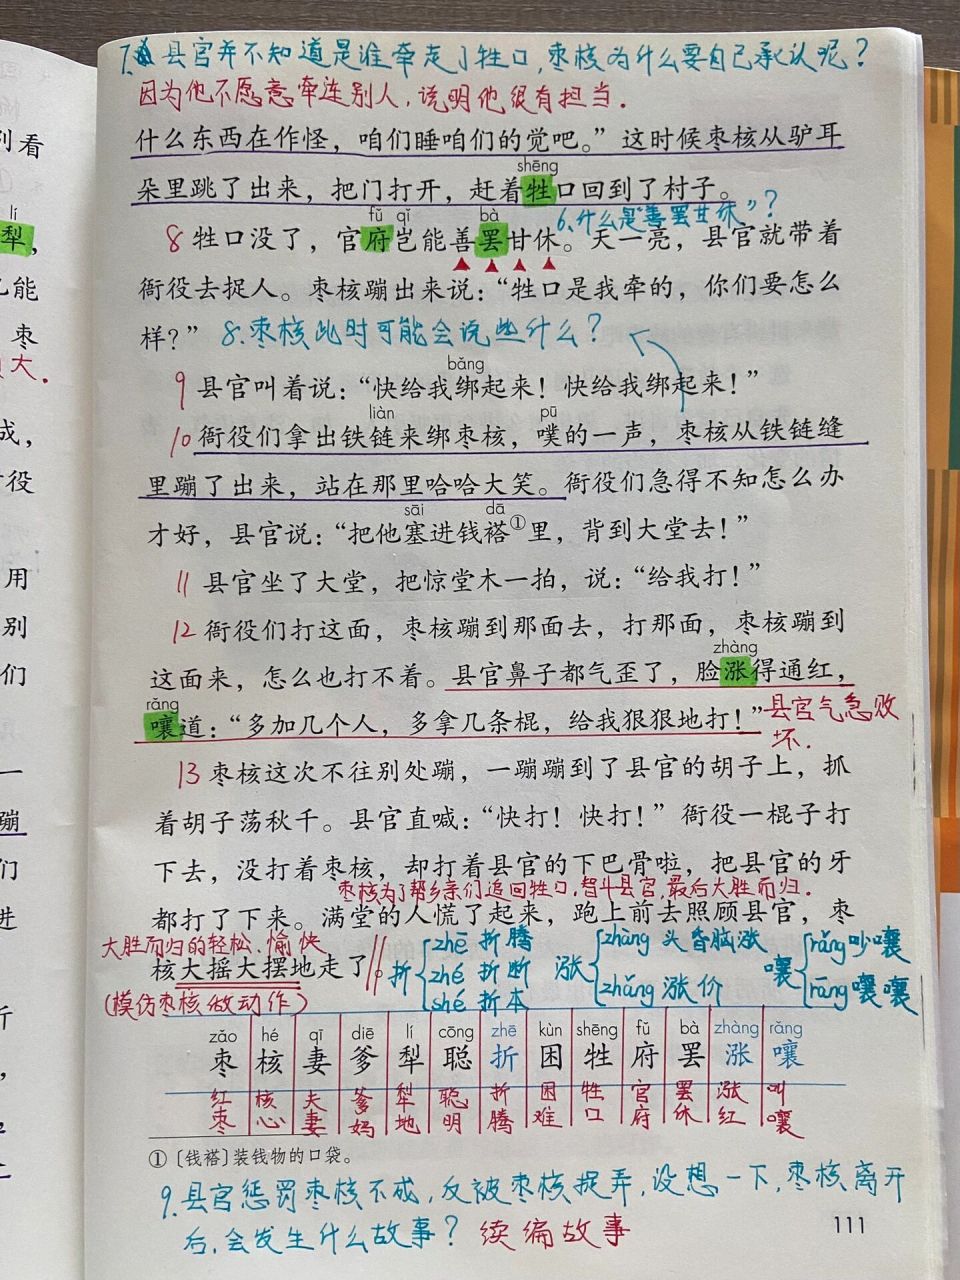 7.县官并不知道是谁牵走了牲口,枣核为什么要自己承认呢?
因为他不愿意牵连别人,说明他很有担当.
什么东西在作怪，咱们睡咱们的觉吧。”这时候枣核从驴耳
shēng
朵里跳了出来，把门打开，赶着牲口回到了村子。
6.什么是“善罢甘休”?
fǔ qǐ bà
8 牲口没了，官府岂能善罢甘休。天一亮，县官就带着
衙役去捉人。枣核蹦出来说：“牲口是我牵的，你们要怎么
样？” 8.枣核此时可能会说些什么?
bǎng
9 县官叫着说：“快给我绑起来！快给我绑起来！”
liàn pū
10 衙役们拿出铁链来绑枣核，噗的一声，枣核从铁链缝
里蹦了出来，站在那里哈哈大笑。衙役们急得不知怎么办
sāi dā
才好，县官说：“把他塞进钱褡①里，背到大堂去！”
11 县官坐了大堂，把惊堂木一拍，说：“给我打！”
12 衙役们打这面，枣核蹦到那面去，打那面，枣核蹦到
zhàng
这面来，怎么也打不着。县官鼻子都气歪了，脸涨得通红，
rǎng
嚷道：“多加几个人，多拿几条棍，给我狠狠地打！” 县官气急败
坏.
13 枣核这次不往别处蹦，一蹦蹦到了县官的胡子上，抓
着胡子荡秋千。县官直喊：“快打！快打！”衙役一棍子打
下去，没打着枣核，却打着县官的下巴骨啦，把县官的牙
枣核为了帮乡亲们追回牲口,智斗县官,最后大胜而归.
都打了下来。满堂的人慌了起来，跑上前去照顾县官，枣
大胜而归的轻松、愉快
核大摇大摆地走了。
(模仿枣核做动作)
折 zhē 折腾 zhé 折断 shé 折本
涨 zhàng 头昏脑涨 zhǎng 涨价
嚷 rǎng 吵嚷 rāng 嚷嚷
zǎo hé qī diē lí cōng zhē kùn shēng fǔ bà zhàng rǎng
枣 核 妻 爹 犁 聪 折 困 牲 府 罢 涨 嚷
红枣 核心 夫妻 爹妈 犁地 聪明 折腾 困难 牲口 官府 罢休 涨红 叫嚷
①〔钱褡〕装钱物的口袋。
9.县官惩罚枣核不成,反被枣核捉弄,设想一下,枣核离开
后,会发生什么故事? 续编故事
111